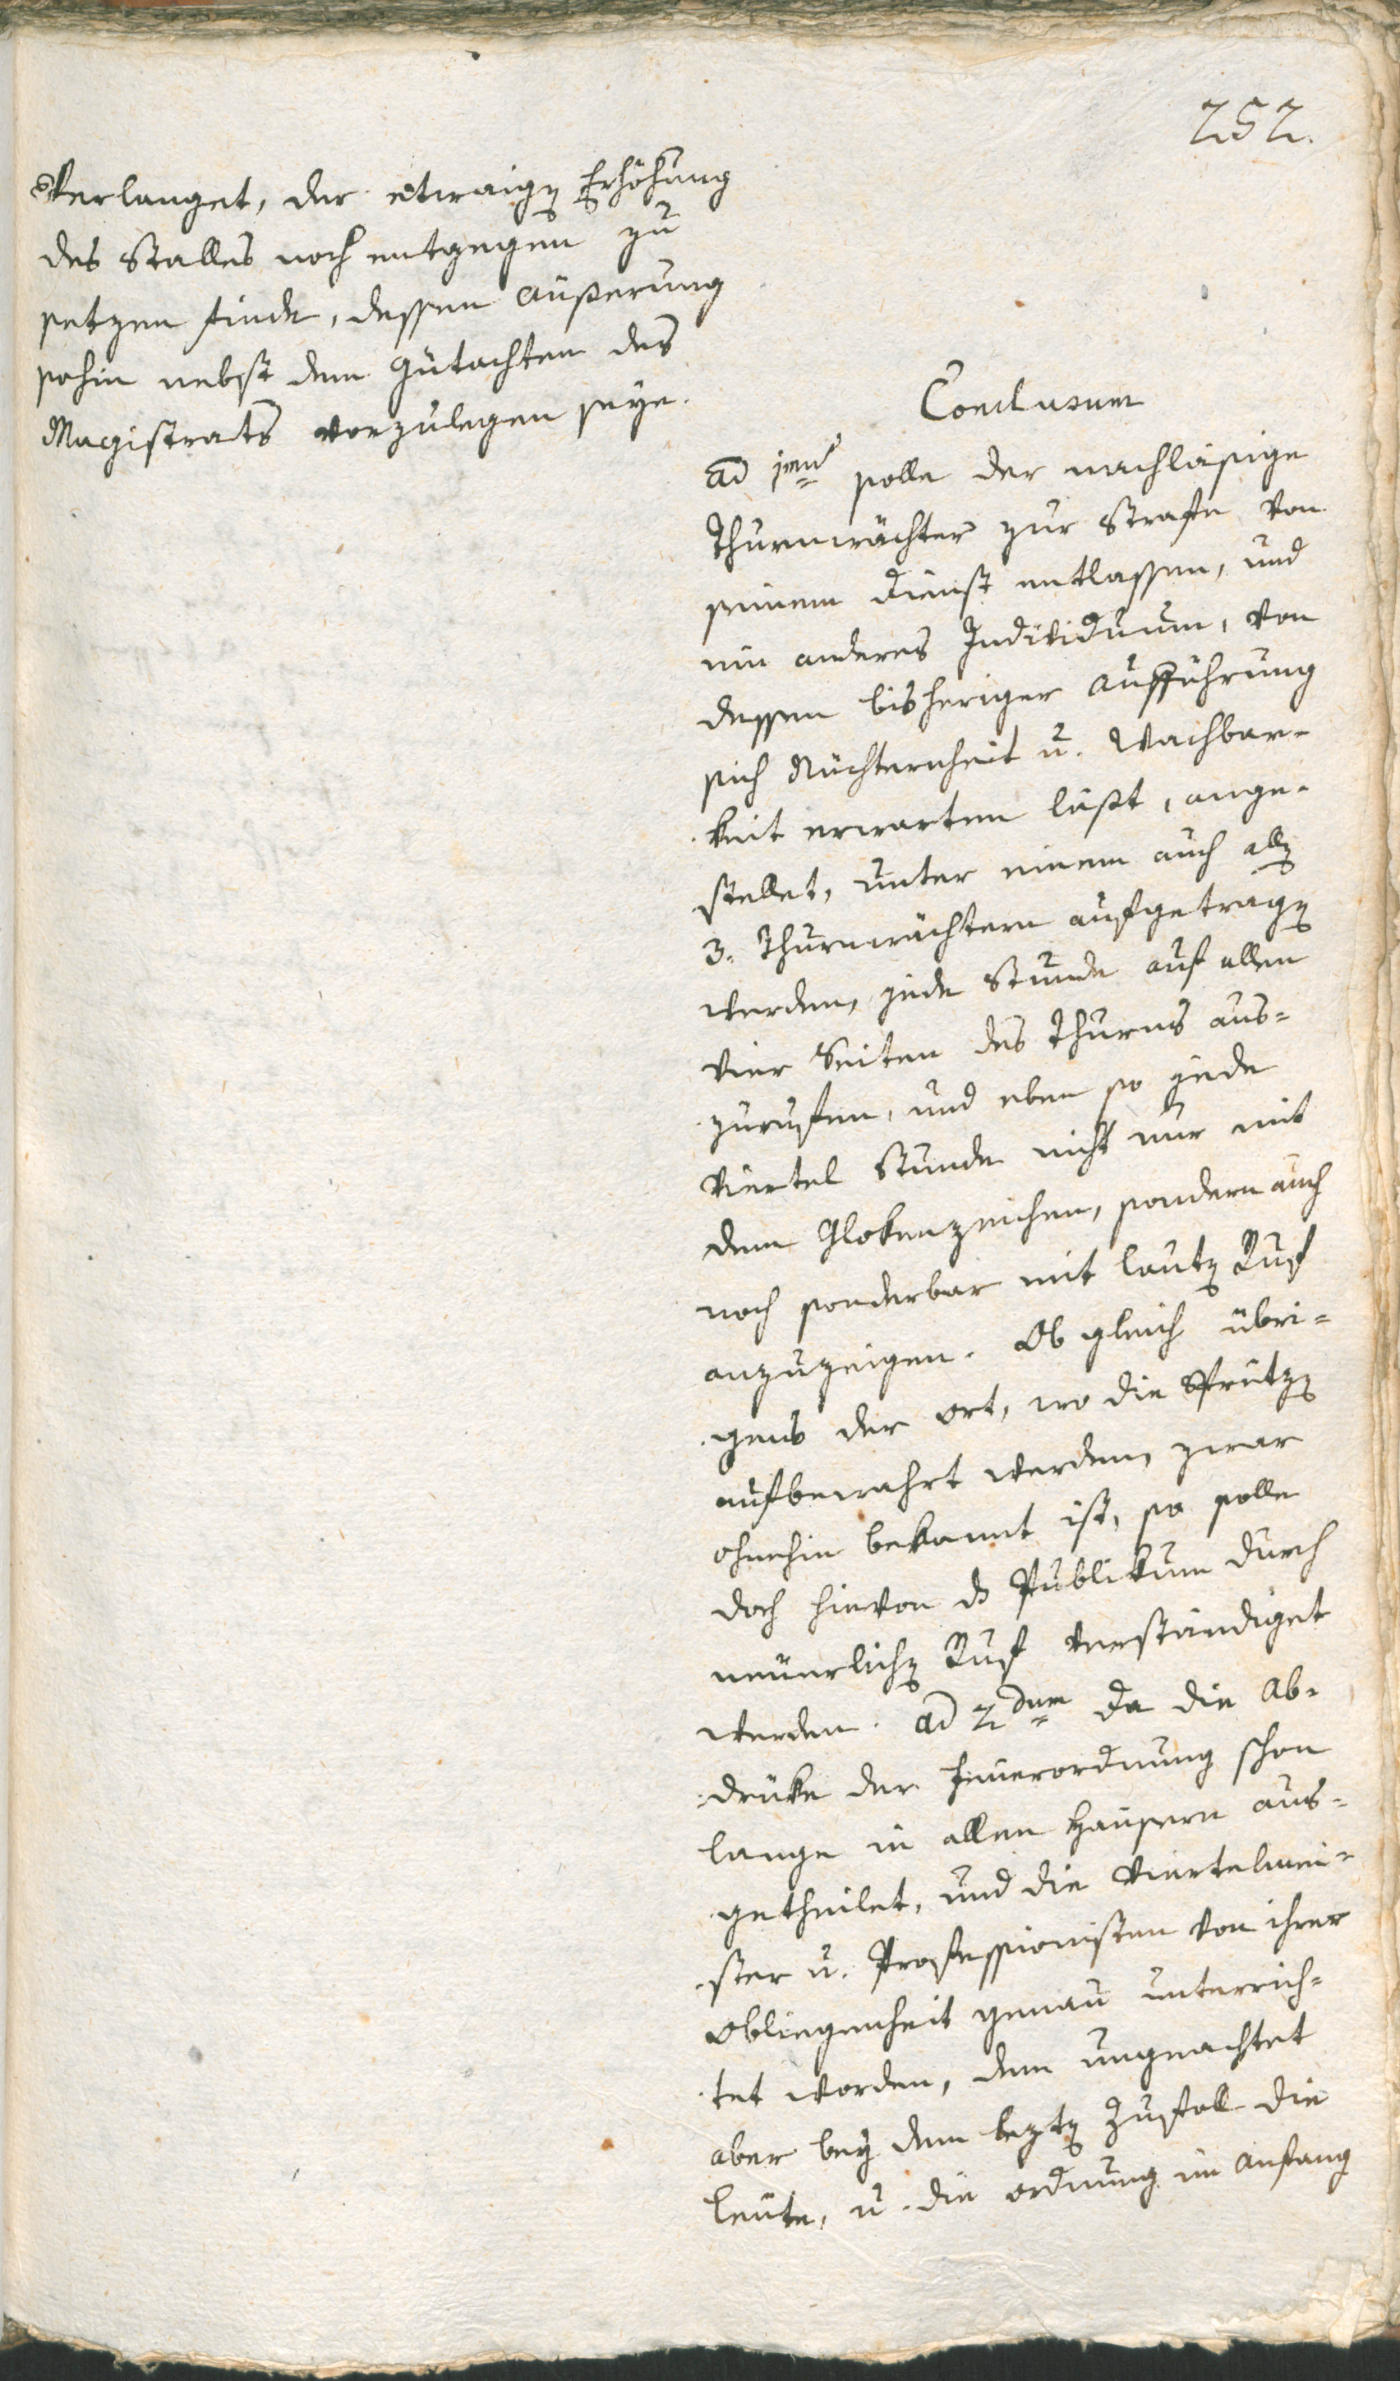 252.
Verlanget, der etwaigen Erhöhung
des Stalles noch entgegen zu
setzen finde, dessen Äußerung
sohin nebst dem Gutachten des
Magistrats vorzulegen seye.
Conclusum
ad 1mum solle der nachläßige
Thurnwächter zur Strafe von
seinem Dienst entlassen, und
ein anderes Individuum, von
dessen bisheriger Aufführung
sich Nüchternheit u. Wachbar-
keit erwarten läßt, ange-
stellet, unter einem auch allen
3. Thurnwächtern aufgetragen
werden, jede Stunde auf allen
vier Seiten des Thurns aus-
zurufen, und eben so jede
Viertel Stunde nicht nur mit
dem Glokenzeichen, sondern auch
noch sonderbar mit lauten Ruf
anzuzeigen. Ob gleich übri-
gens der Ort, wo die Sprützen
aufbewahrt werden, zwar
ohnehin bekannt ist, so solle
doch hievon ds Publikum durch
neuerlichen Ruf verständiget
werden. ad 2dum Da die Ab-
drüke der Feuerordnung schon
lange in allen Häusern aus-
getheilet, und die Viertelmei-
ster u. Professionisten von ihrer
Obliegenheit genau unterrich-
tet worden, dem ungeachtet
aber bey dem lezten Zufall die
Leute, u. die Ordnung im Anfang